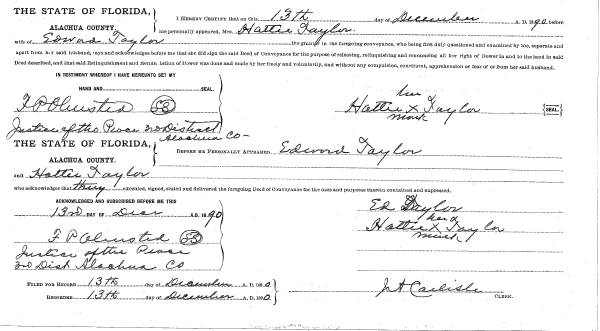 THE STATE OF FLORIDA,
ALACHUA COUNTY.
I HEREBY CERTIFY that on this 13th day of December A. D. 1890, before
me personally appeared, Mrs. Hattie Taylor
wife of Edward Taylor the grantor in the foregoing conveyance, who being first duly questioned and examined by me, separate and
apart from her said husband, says and acknowledges before me that she did sign the said Deed of Conveyance for the purpose of releasing, relinquishing and renouncing all her right of Dower in and to the land in said
Deed described, and that said Relinquishment and Renunciation of Dower was done and made by her freely and voluntarily, and without any compulsion, constraint, apprehension or fear of or from her said husband.
IN TESTIMONY WHEREOF I HAVE HEREUNTO SET MY
HAND AND SEAL.
F P Olmsted
Justice of the Peace 3rd District
Alachua Co
her
Hattie X Taylor
mark
SEAL.
THE STATE OF FLORIDA,
ALACHUA COUNTY.
BEFORE ME PERSONALLY APPEARED Edword Taylor
and Hattie Taylor
who acknowledges that they executed, signed, sealed and delivered the foregoing Deed of Conveyance for the uses and purposes therein contained and expressed,
ACKNOWLEDGED AND SUBSCRIBED BEFORE ME THIS
13 DAY OF A. D. 1890
F P Olmsted
Justice of the Peace
3rd Dist Alachua Co
Ed Taylor
Hattie X Taylor
mark
FILED FOR RECORD 13th day of December A. D. 1890
RECORDED 13th day of December A. D. 1890
CLERK.